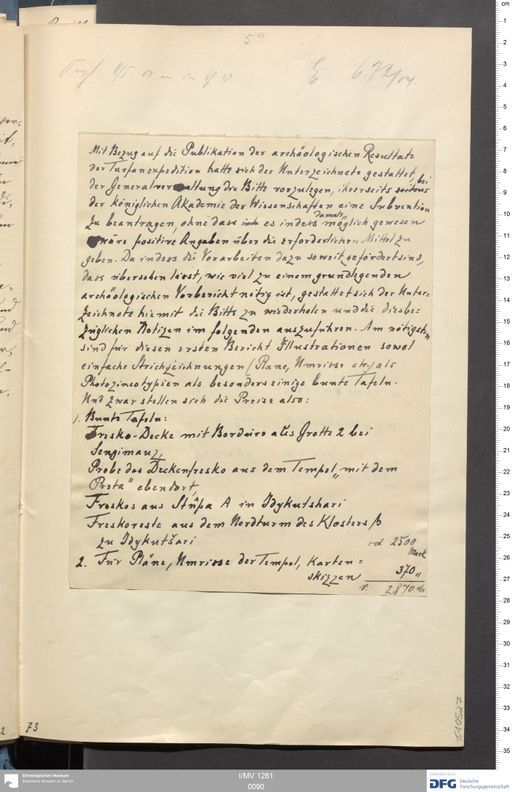 59
E 672/04.
Mit Bezug auf die Publikation der archäologischen Resultate
der Turfanexpedition hatte sich der Unterzeichnete gestattet, bei
der Generalverwaltung die Bitte vorzulegen, ihrerseits
der königlichen Akademie der Wissenschaften eine Subvention
zu beantragen, ohne dass es indess damals möglich gewesen
wäre positive Angaben über die erforderlichen Mittel zu
geben. Da indess die Vorarbeiten dazu soweit gefördert sind,
dass übersehen lässt, wie viel zu einem grundlegenden
archäologischen Vorbericht nötig ist, gestattet sich der Unter=
zeichnete hiemit die Bitte zu wiederholen und die diesbe=
züglichen Notizen im folgenden auszuführen. Am nötigsten
sind für diesen ersten Bericht Illustrationen sowol
einfache Strichzeichnungen (Pläne, Umrisse etc.) als
Photozincotypien als besonders einige bunte Tafeln.
Und zwar stellen sich die Preise also:
1. Bunte Tafeln:
Fresko-Decke mit Bordüre aus Grotte 2 bei
Sengimauz,
Probe des Deckenfresko aus dem Tempel „mit dem
Preta" ebendort,
Freskos aus Stûpa A in Idykutshari
Freskoreste aus dem Nordturm des Klosters β
zu Idykutšari 2500 Mark
2. Für Pläne, Umrisse der Tempel, Karten=
skizzen 370 „
2870
73
I/MV 1261
0090
Ethnologisches Museum
Staatliche Museen zu Berlin
DFG Deutsche
Forschungsgemeinschaft